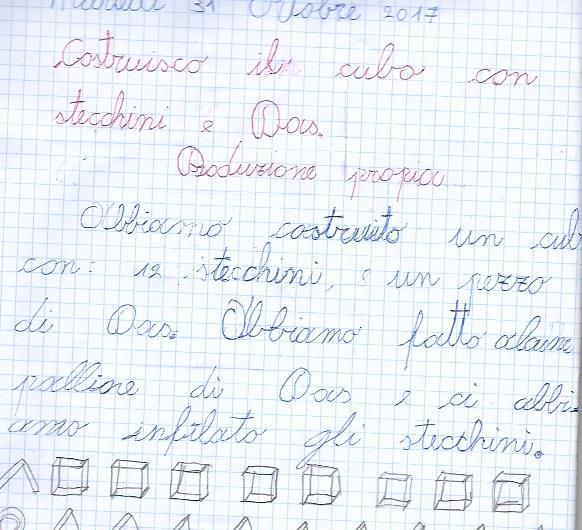 Martedì 31 Ottobre 2017
Costruisco il cubo con
stecchini e Das.
Produzione propria
Abbiamo costruito un cub
con: 12 stecchini, e un pezzo
di Das. Abbiamo fatto alcune
palline di Das e ci abbi-
amo infilato gli stecchini.